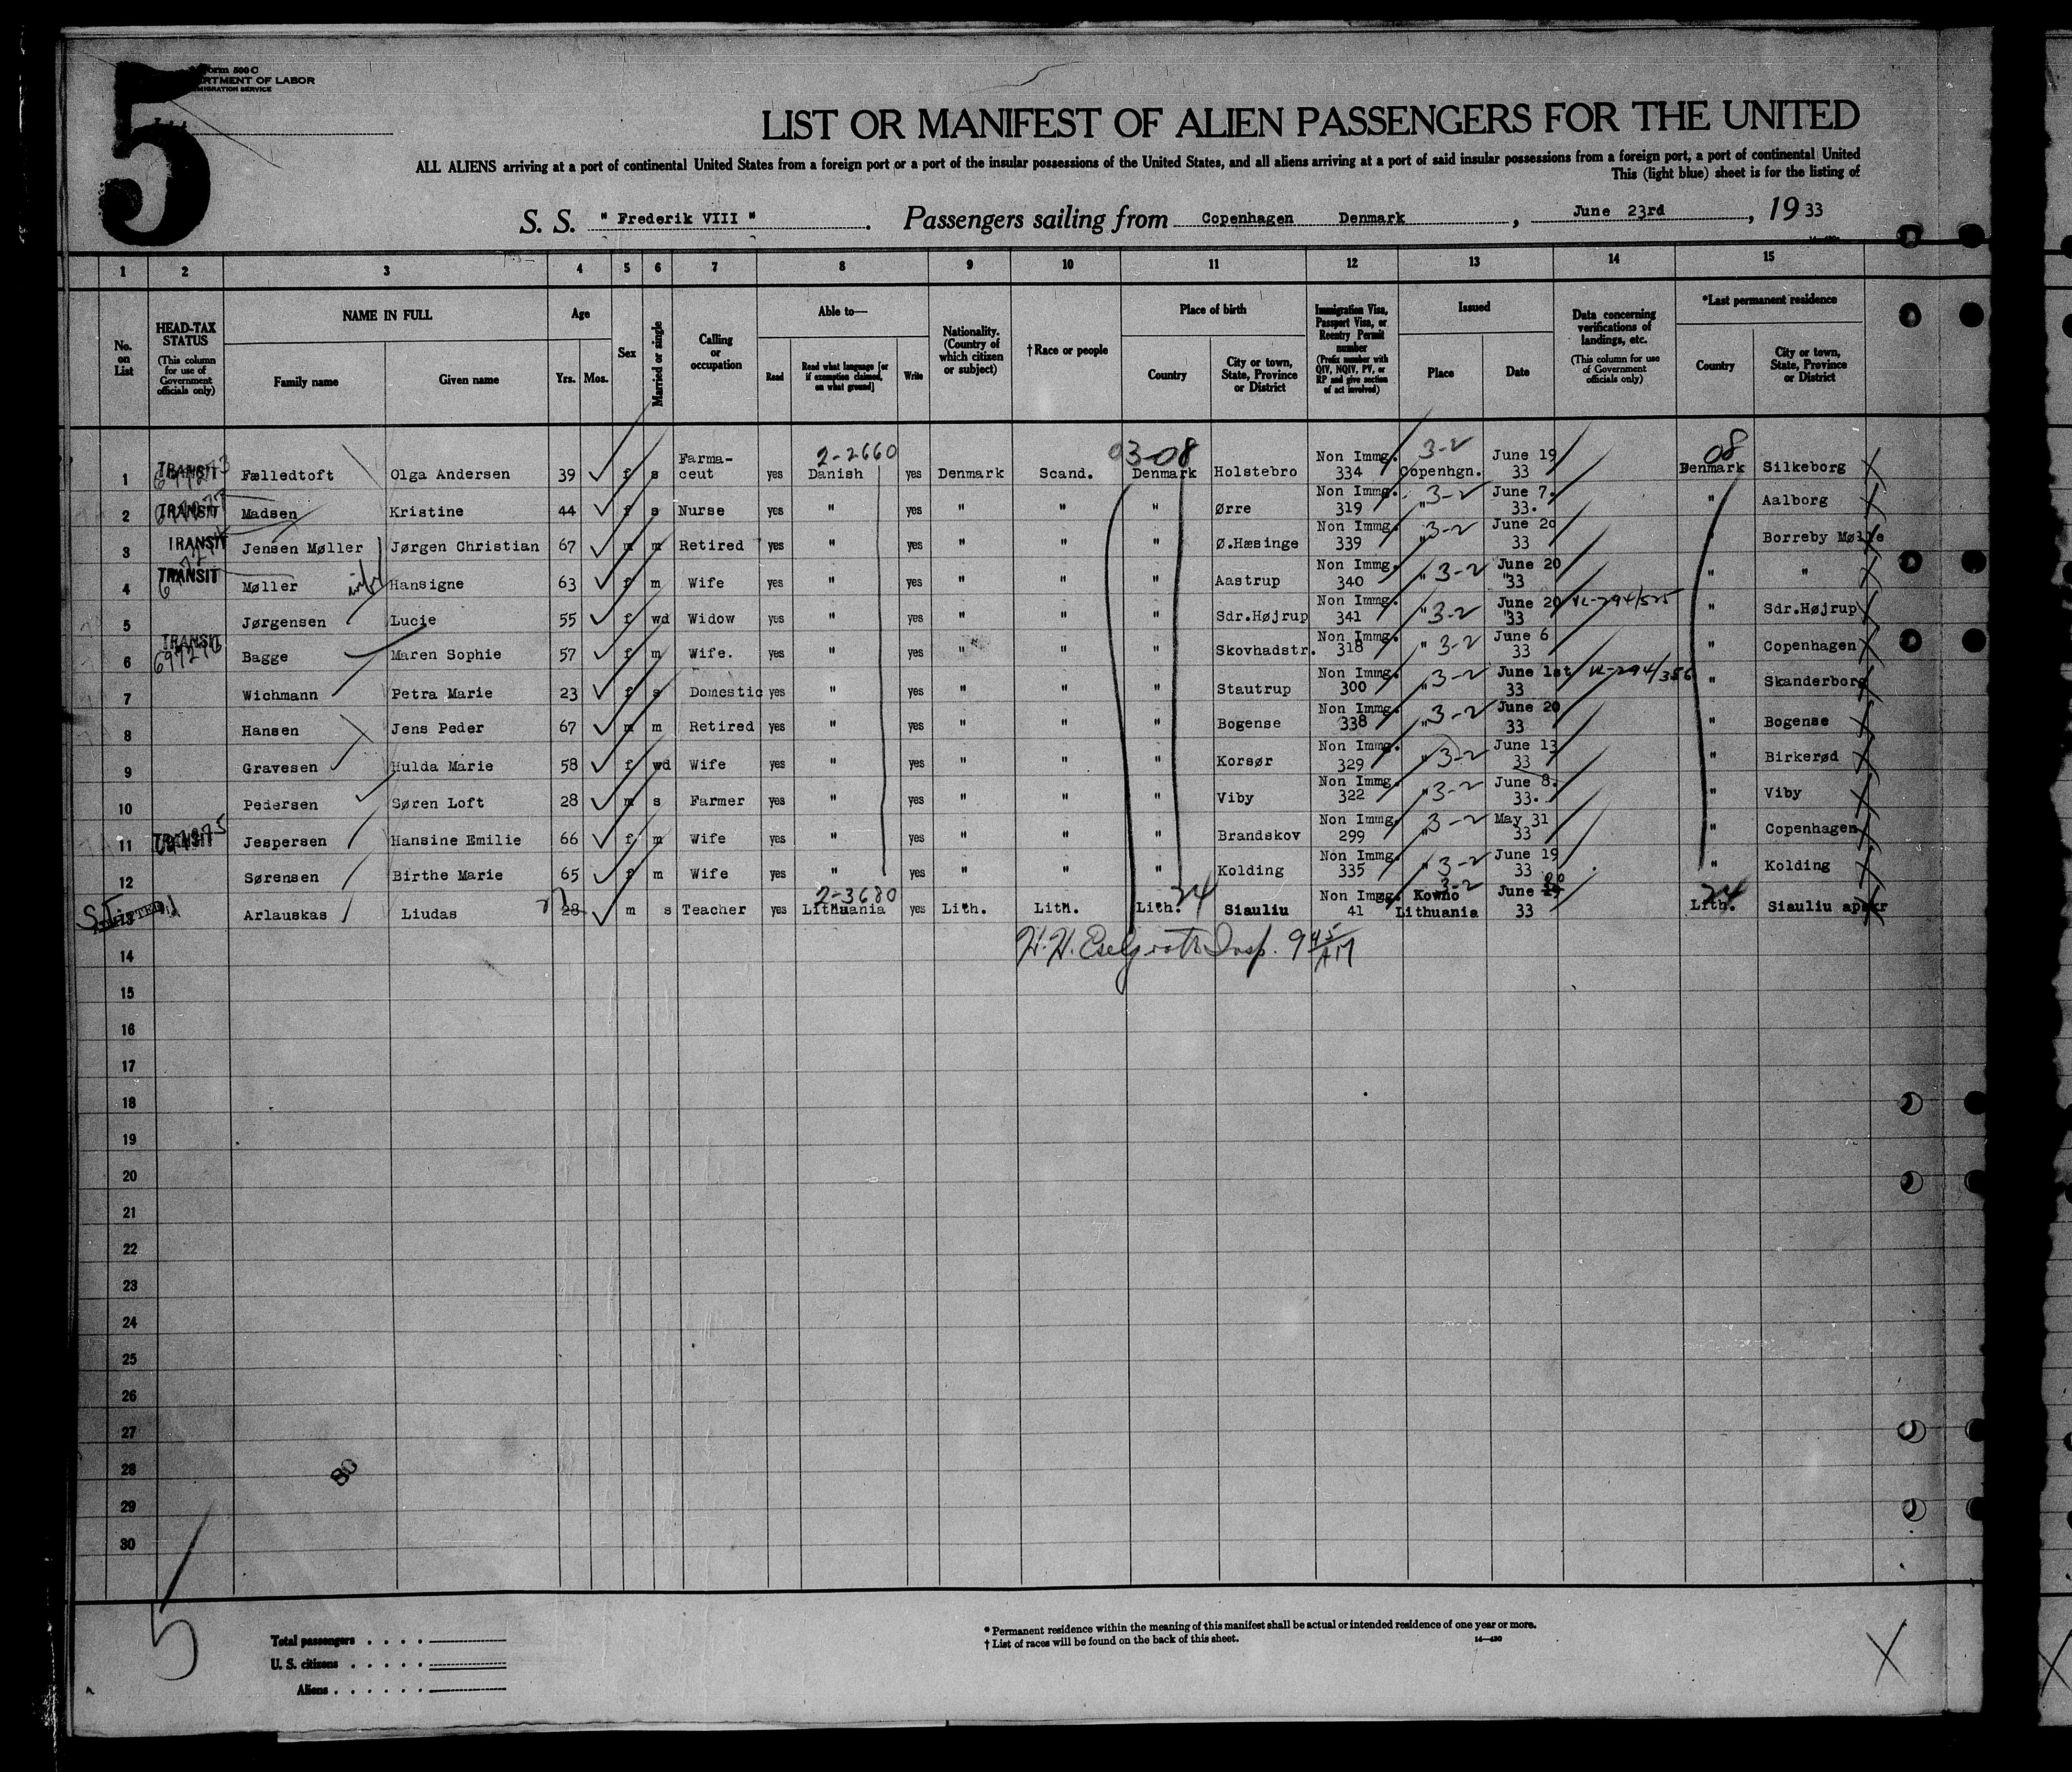 5
Form 500 C
DEPARTMENT OF LABOR
IMMIGRATION SERVICE
List
LIST OR MANIFEST OF ALIEN PASSENGERS FOR THE UNITED
ALL ALIENS arriving at a port of continental United States from a foreign port or a port of the insular possessions of the United States, and all aliens arriving at a port of said insular possessions from a foreign port, a port of continental United
This (light blue) sheet is for the listing of
S. S. " Frederik VIII ". Passengers sailing from Copenhagen Denmark, June 23rd, 1933
1 2 3 4 5 6 7 8 9 10 11 12 13 14 15
No. on List
HEAD-TAX STATUS (This column for use of Government officials only)
NAME IN FULL
Family name Given name
Age
Yrs. Mos.
Sex
Married or single
Calling or occupation
Able to—
Read Read what language [or if exemption claimed, on what ground] Write
Nationality. (Country of which citizen or subject)
†Race or people
Place of birth
Country City or town, State, Province or District
Immigration Visa, Passport Visa, or Reentry Permit number (Prefix number with QIV, NQIV, PV, or RP and give section of act involved)
Issued
Place Date
Data concerning verifications of landings, etc. (This column for use of Government officials only)
*Last permanent residence
Country City or town, State, Province or District
2-2660 03-08 3-2 08
1 TRANSIT Fælledtoft Olga Andersen 39 f s Farma-ceut yes Danish yes Denmark Scand. Denmark Holstebro Non Immg. 334 Copenhgn. June 19 33 Denmark Silkeborg
2 TRANSIT Madsen Kristine 44 f s Nurse yes " yes " " " Ørre Non Immg. 319 " 3-2 June 7. 33. " Aalborg
3 TRANSIT Jensen Møller Jørgen Christian 67 m m Retired yes " yes " " " Ø.Hæsinge Non Immg. 339 " 3-2 June 20 33 " Borreby Mølle
4 TRANSIT Møller wife Hansigne 63 f m Wife yes " yes " " " Aastrup Non Immg. 340 " 3-2 June 20 "33 " "
5 Jørgensen Lucie 55 f wd Widow yes " yes " " " Sdr.Højrup Non Immg. 341 " 3-2 June 20 "33 VL-294/525 " Sdr.Højrup
6 TRANSIT 697276 Bagge Maren Sophie 57 f m Wife. yes " yes " " " Skovhadstr. Non Immg. 318 " 3-2 June 6 33 " Copenhagen
7 Wichmann Petra Marie 23 f s Domestic yes " yes " " " Stautrup Non Immg. 300 " 3-2 June 1st 33 VL-294/386 " Skanderborg
8 Hansen Jens Peder 67 m m Retired yes " yes " " " Bogense Non Immg. 338 " 3-2 June 20 33 " Bogense
9 Gravesen Hulda Marie 58 f wd Wife yes " yes " " " Korsør Non Immg. 329 " 3-2 June 13 33 " Birkerød
10 Pedersen Søren Loft 28 m s Farmer yes " yes " " " Viby Non Immg. 322 " 3-2 June 8. 33. " Viby
11 TRANSIT Jespersen Hansine Emilie 66 f m Wife yes " yes " " " Brandskov Non Immg. 299 " 3-2 May 31 33 " Copenhagen
12 Sørensen Birthe Marie 65 f m Wife yes " yes " " " Kolding Non Immg. 335 " 3-2 June 19 33 " Kolding
2-3680 24 3-2 24
Arlauskas Liudas 28 m s Teacher yes Lithuania yes Lith. Lith. Lith. Siauliu Non Immg. 41 Kowno Lithuania June 33 Lith. Siauliu apskr
H.H. Insp. 9 45/AM
14
15
16
17
18
19
20
21
22
23
24
25
26
27
28
29
30
80
5
Total passengers
U. S. citizens
Aliens
* Permanent residence within the meaning of this manifest shall be actual or intended residence of one year or more.
† List of races will be found on the back of this sheet.
14—430